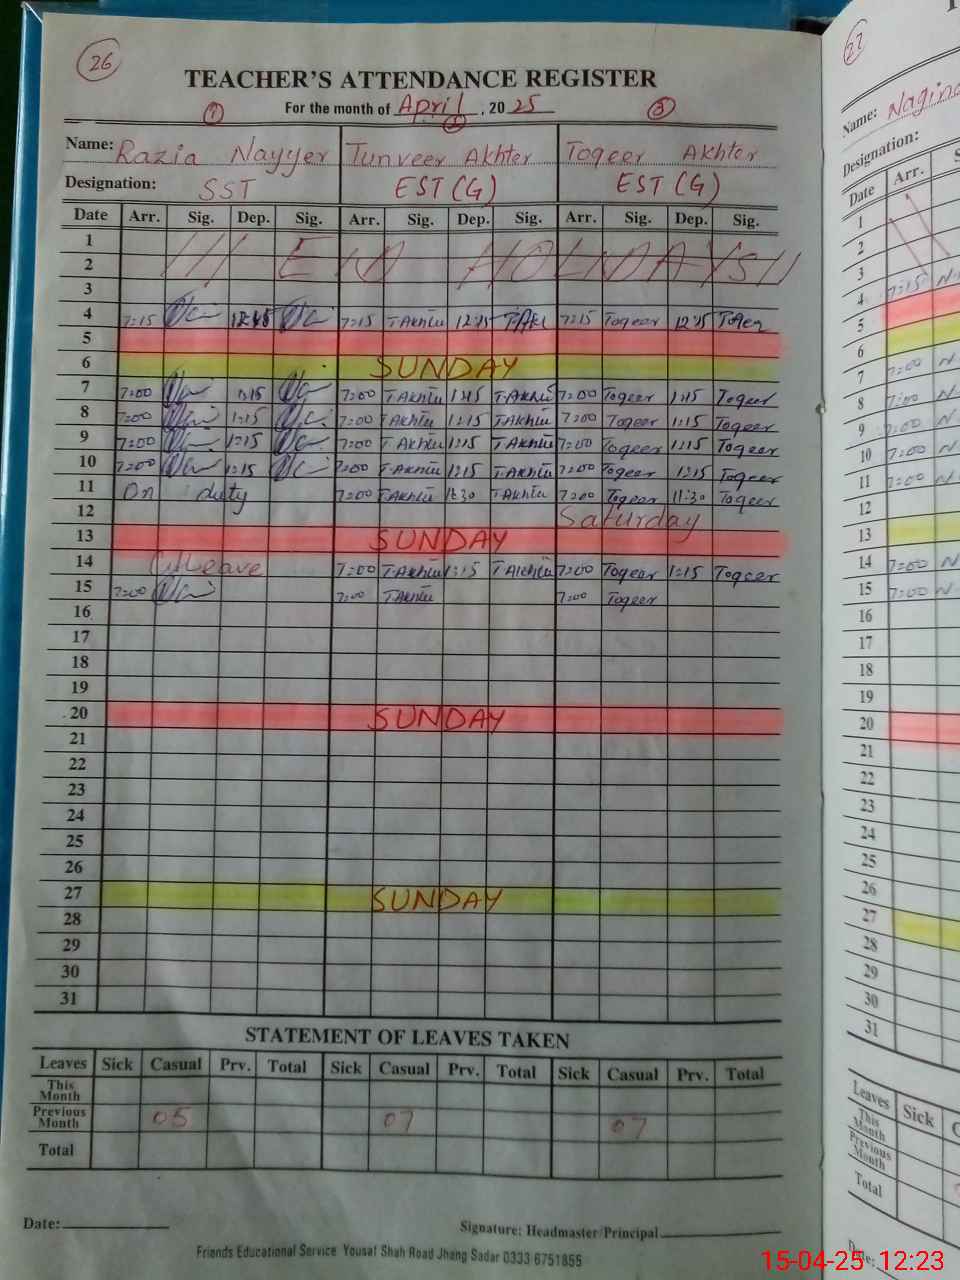 26
TEACHER'S ATTENDANCE REGISTER
For the month of April, 2025
1 2 3
Name: Razia Nayyer Tunveer Akhter Toqeer Akhter
Designation: SST EST (G) EST (G)
Date Arr. Sig. Dep. Sig. Arr. Sig. Dep. Sig. Arr. Sig. Dep. Sig.
1
2 EID HOLIDAYS
3
4 7:15 12:45 7:15 T.Akhtu 12:45 7:15 Toqeer 12:45 Toqeer
5
6 SUNDAY
7 7:00 1:15 7:00 T.Akhtu 1:15 T.Akhtu 7:00 Toqeer 1:15 Toqeer
8 7:00 1:15 7:00 T.Akhtu 1:15 T.Akhtu 7:00 Toqeer 1:15 Toqeer
9 7:00 1:15 7:00 T.Akhtu 1:15 T.Akhtu 7:00 Toqeer 1:15 Toqeer
10 7:00 1:15 7:00 T.Akhtu 1:15 T.Akhtu 7:00 Toqeer 1:15 Toqeer
11 On duty 7:00 T.Akhtu 11:30 T.Akhtu 7:00 Toqeer 11:30 Toqeer
12 Saturday
13 SUNDAY
14 C/Leave 7:00 T.Akhtu 1:15 T.Akhtu 7:00 Toqeer 1:15 Toqeer
15 7:00 7:00 T.Akhtu 7:00 Toqeer
16
17
18
19
20 SUNDAY
21
22
23
24
25
26
27 SUNDAY
28
29
30
31
STATEMENT OF LEAVES TAKEN
Leaves Sick Casual Prv. Total Sick Casual Prv. Total Sick Casual Prv. Total
This Month
Previous Month 05 07 07
Total
Date:
Signature: Headmaster/Principal
Friends Educational Service Yousaf Shah Road Jhang Sadar 0333 6751855
27
Name:
Designation:
Date Arr.
1
2
3
4 7:15
5
6
7 7:00
8 7:00
9 7:00
10 7:00
11 7:00
12
13
14 7:00
15 7:00
16
17
18
19
20
21
22
23
24
25
26
27
28
29
30
31
Leaves Sick
This Month
Previous Month
Total
15-04-25 12:23